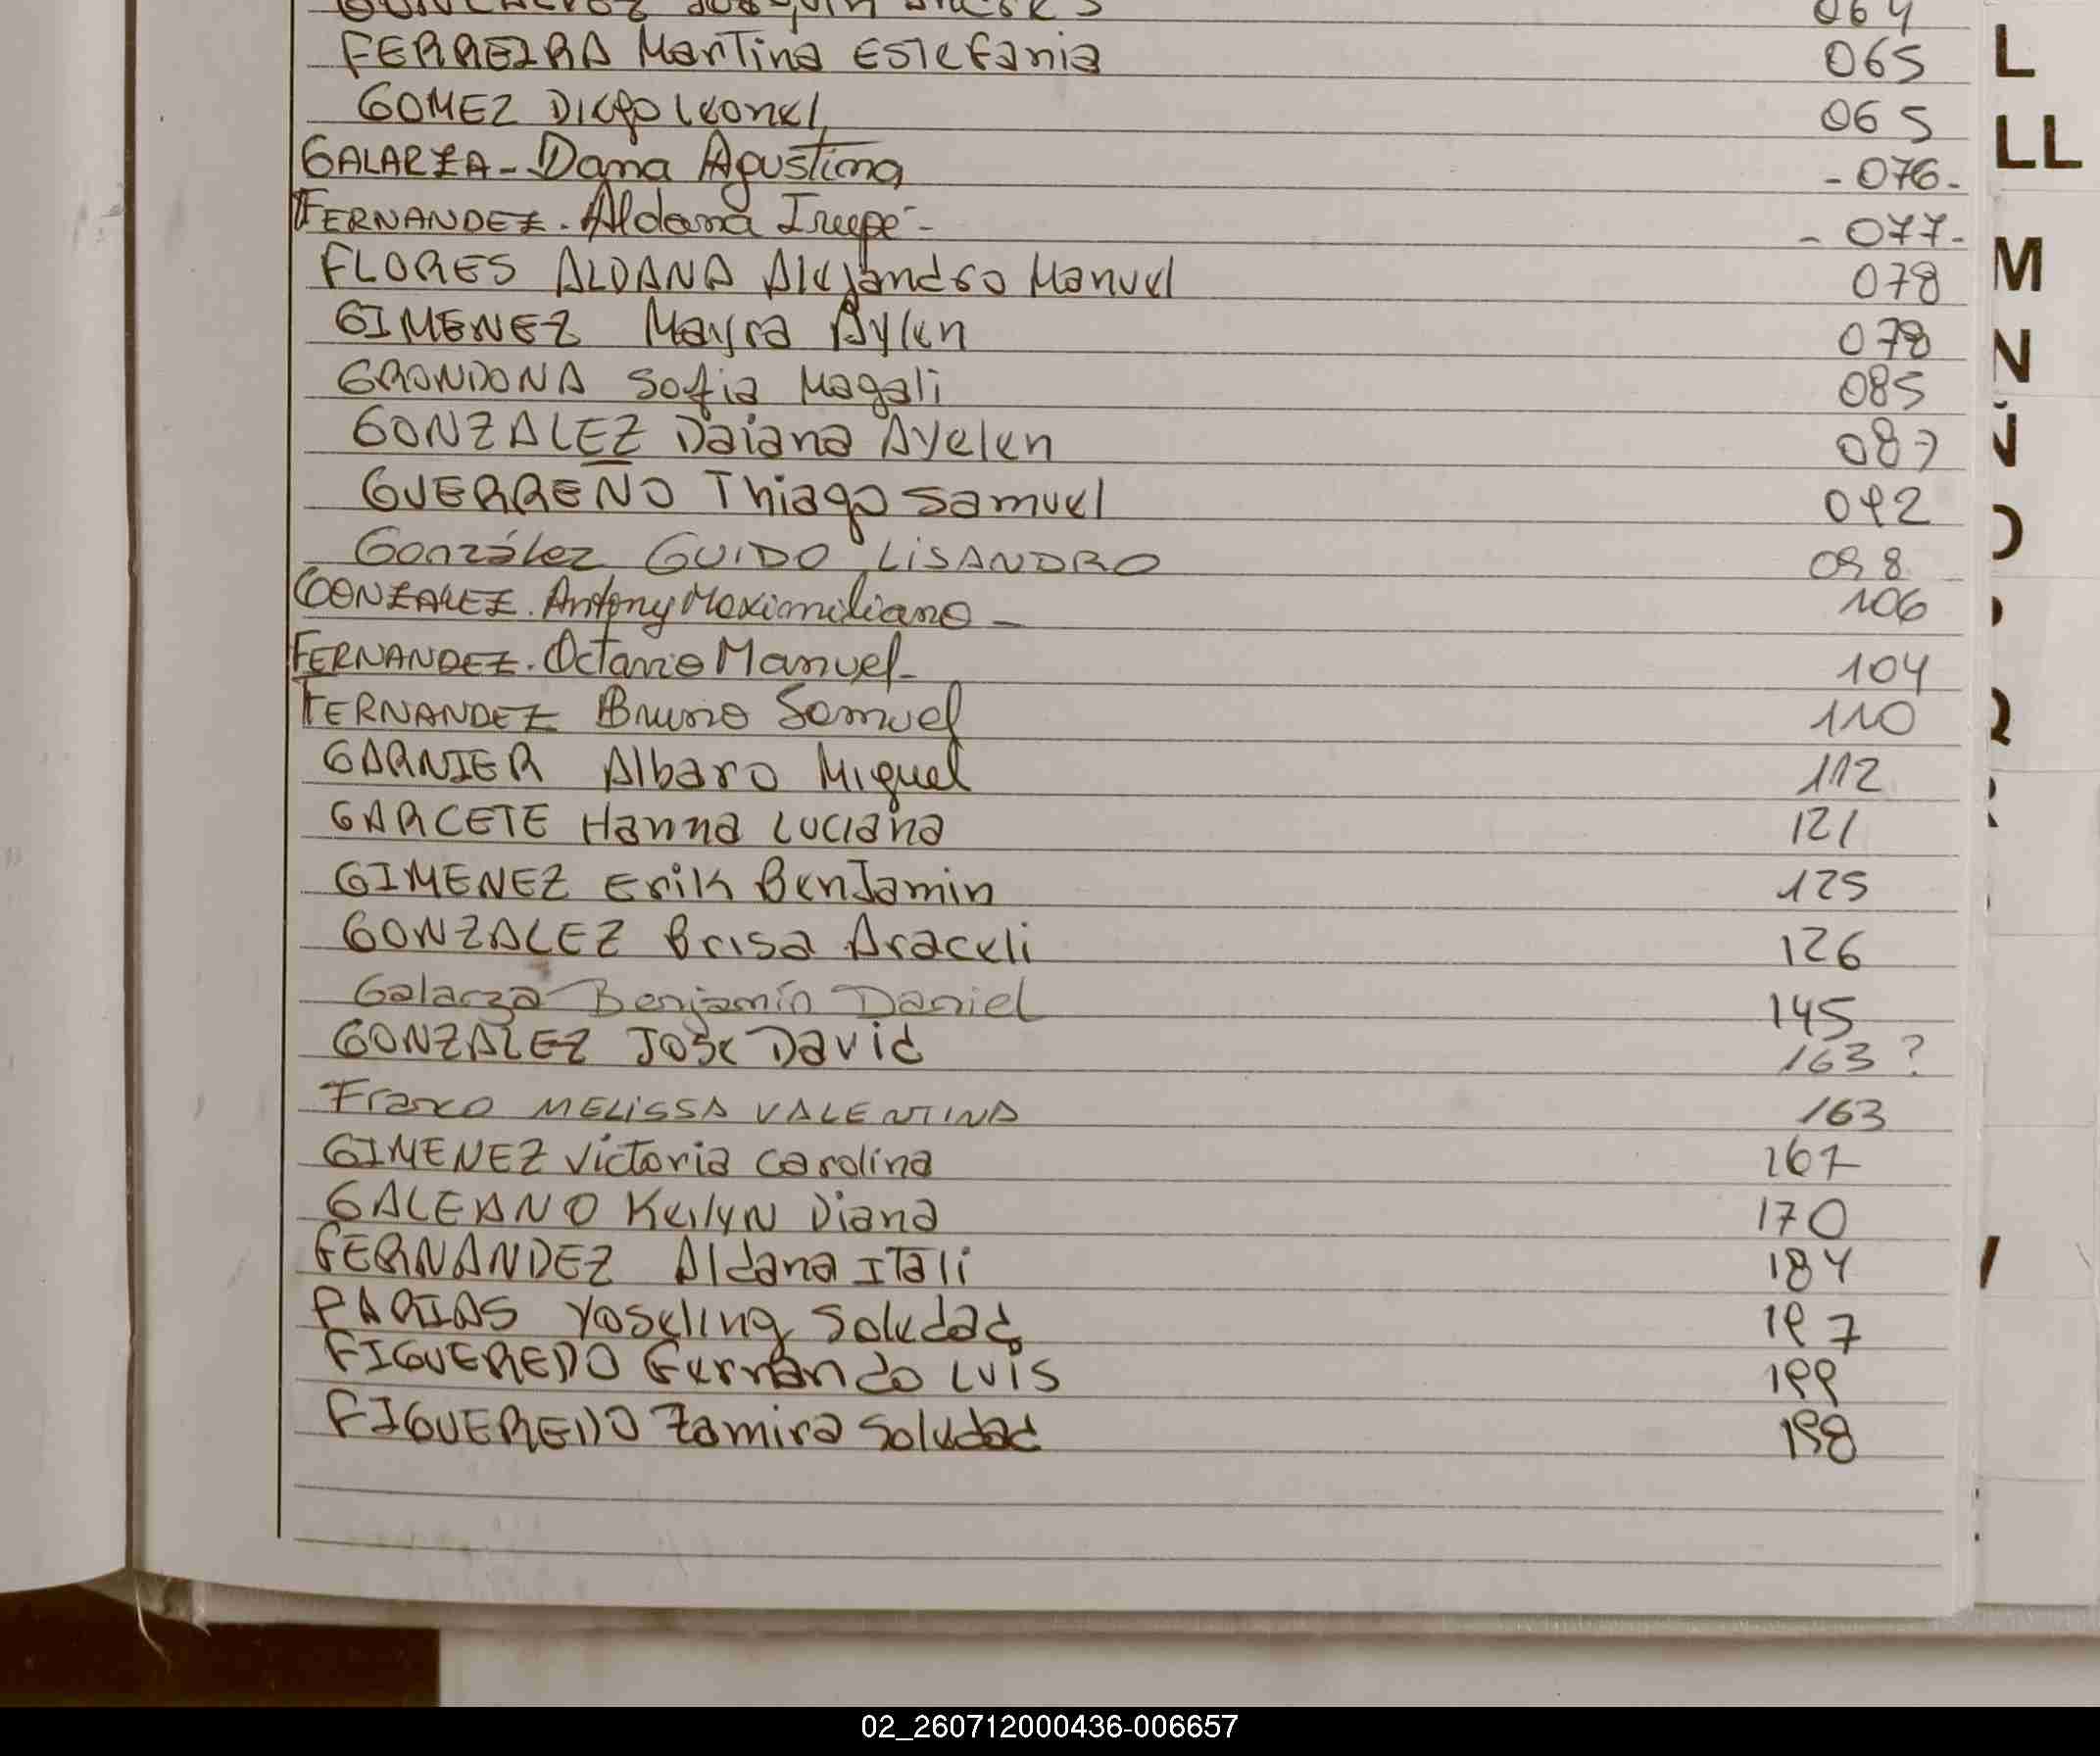 064
FERREIRA Martina Estefania 065
GOMEZ Diego Leonel 065
GALARZA - Dana Agustina - 076 -
FERNANDEZ. Aldana Irupé - - 077 -
FLORES ALDANA Alejandro Manuel 078
GIMENEZ Mayra Aylen 078
GRONDONA Sofia Magali 085
GONZALEZ Daiana Ayelen 087
GUERREÑO Thiago Samuel 092
González GUIDO LISANDRO 098
GONZALEZ. Antony Maximiliano - 106
FERNANDEZ. Octavio Manuel - 104
FERNANDEZ Bruno Samuel 110
GARNIER Albaro Miguel 112
GARCETE Hanna Luciana 121
GIMENEZ Erik BenJamin 125
GONZALEZ Brisa Araceli 126
Galarza Benjamín Daniel 145
GONZALEZ José David 163 ?
Franco MELISSA VALENTINA 163
GIMENEZ Victoria Carolina 167
GALEANO Keilyn Diana 170
FERNANDEZ Aldana Itali 184
FARIAS Yoseling Soledad 197
FIGUEREDO Fernando Luis 199
FIGUEREDO Zamira Soledad 198
L
LL
M
N
Ñ
O
P
Q
R
02_260712000436-006657